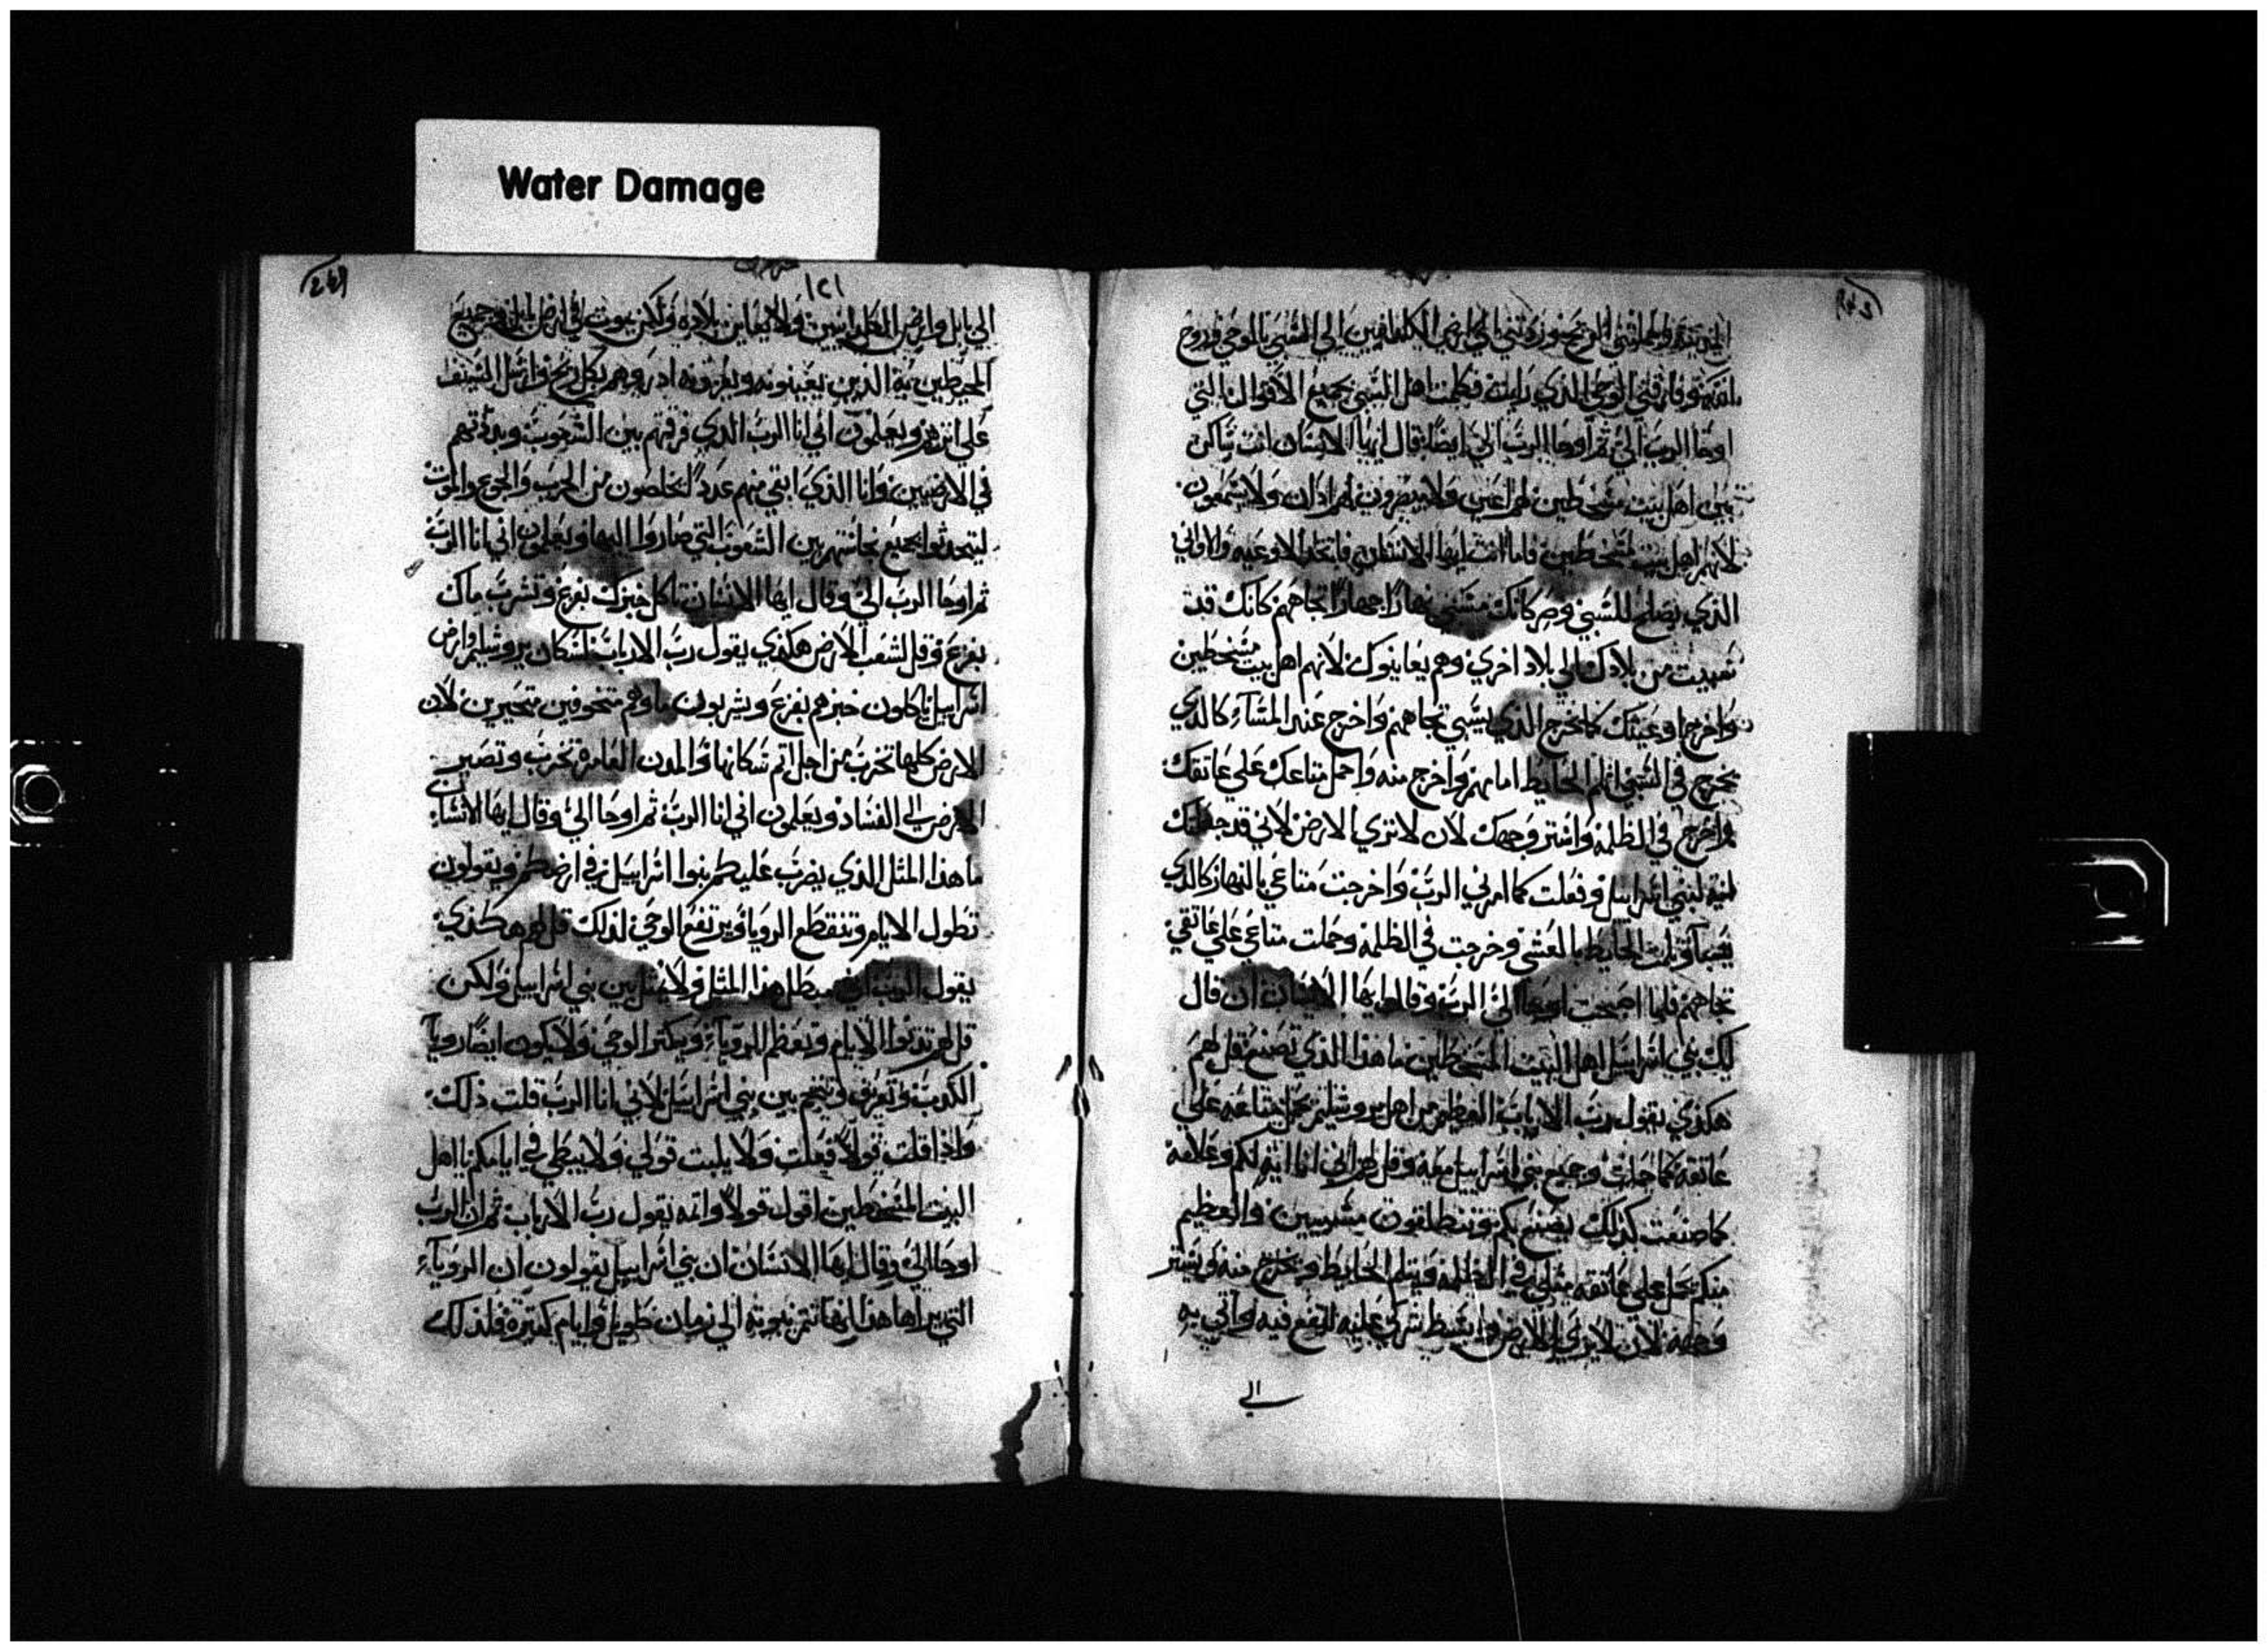 Water Damage
الى ارض الكلدانيين الى السبي بالوحي وروح
الله وفارقني الوحي الذي رايت فكلمت اهل السبي بجميع الاقوال التي
اوحا الرب الي ثم اوحا الرب الي ايضا قال ايها الانسان انت ساكن
بين اهل بيت مسخطين لهم اعين ولا يبصرون لهم اذان ولا يسمعون
لانهم اهل بيت مسخطين فاما انت ايها الانسان فاتخذ الاوعيه والاواني
الذي يصلح للسبي وصر كانك مسبي نهارا جهارا تجاههم كانك قد
سبيت من بلادك الي بلاد اخري وهم يعاينوك لانهم اهل بيت مسخطين
واخرج اوعيتك كما يخرج الذي يسبي تجاههم واخرج عند المساء كالذي
يخرج في السبي اثلم الحايط امامهم واخرج منه واحمل متاعك علي عاتقك
واخرج في الظلمه واستر وجهك لان لا تري الارض لاني قد جعلتك
ايه لبني اسراييل وفعلت كما امرني الرب واخرجت متاعي بالنهار كالذي
يسبا وثلمت الحايط بالعشي وخرجت في الظلمه وحملت متاعي علي عاتقي
تجاههم فلما اصبحت اوحا الي الرب وقال ايها الانسان ان قال
لك بني اسراييل اهل البيت المسخطين ما هذا الذي تصنع قل لهم
هكذي يقول رب الارباب العظيم من اهل يروشليم يحمل متاعه علي
عاتقه وجميع بني اسراييل معه وقل لهم اني انا ايه لكم وعلامه
كما صنعت كذلك يصنع بكم وتنطلقون مسبيين والعظيم
منكم يحمل علي عاتقه مثلي في الظلمه ويثلم الحايط ويخرج منه ويستر
وجهه لان لا يري الارض وابسط شركي عليه فيقع فيه واتي به
الي
١٢١
الي بابل وارض الكلدانيين ولا يعاين بلاده ولكن يموت في ارض بابل وجميع
المحيطين به الذين يعينونه ويعزونه اذريهم بكل ريح وارسل السيف
علي اثرهم ويعلمون اني انا الرب الذي فرقتهم بين الشعوب وبددتهم
في الارضين وانا الذي ابقي منهم عددا يخلصون من الحرب والجوع والموت
ليتحدثوا بجميع نجاستهم بين الشعوب التي صاروا اليها ويعلمون اني انا الرب
ثم اوحا الرب الي وقال ايها الانسان تاكل خبزك بفزع وتشرب ماك
بفزع وقل لشعب الارض هكذي يقول رب الارباب لسكان يروشليم وارض
اسراييل ياكلون خبزهم بفزع ويشربون ماوهم متخوفين متحيرين لان
الارض كلها تخرب من اجل اثم سكانها والمدن العامره تخرب وتصير
الارض الي الفساد ويعلمون اني انا الرب ثم اوحا الي وقال ايها الانسان
ما هذا المثل الذي يضرب عليكم بنوا اسراييل في ارضكم ويقولون
تطول الايام وتنقطع الرويا ويرتفع الوحي لذلك قل لهم هكذي
يقول الرب اني مبطل هذا المثل ولا يمثل بين بني اسراييل ولكن
قل لهم تدنوا الايام وتعظم الروياء ويكثر الوحي ولا يكون ايضا رويا
الكدب بين بني اسراييل لاني انا الرب قلت ذلك
واذا قلت قولا فعلت ولا يلبت قولي ولا يبطي في ايامكم يا اهل
البيت المسخطين اقول قولا واتمه يقول رب الارباب ثم ان الرب
اوحا الي وقال ايها الانسان ان بني اسراييل يقولون ان الروياء
التي يراها هذا انها تتم نبوته الي زمان طويل وايام كثيره فلذلك